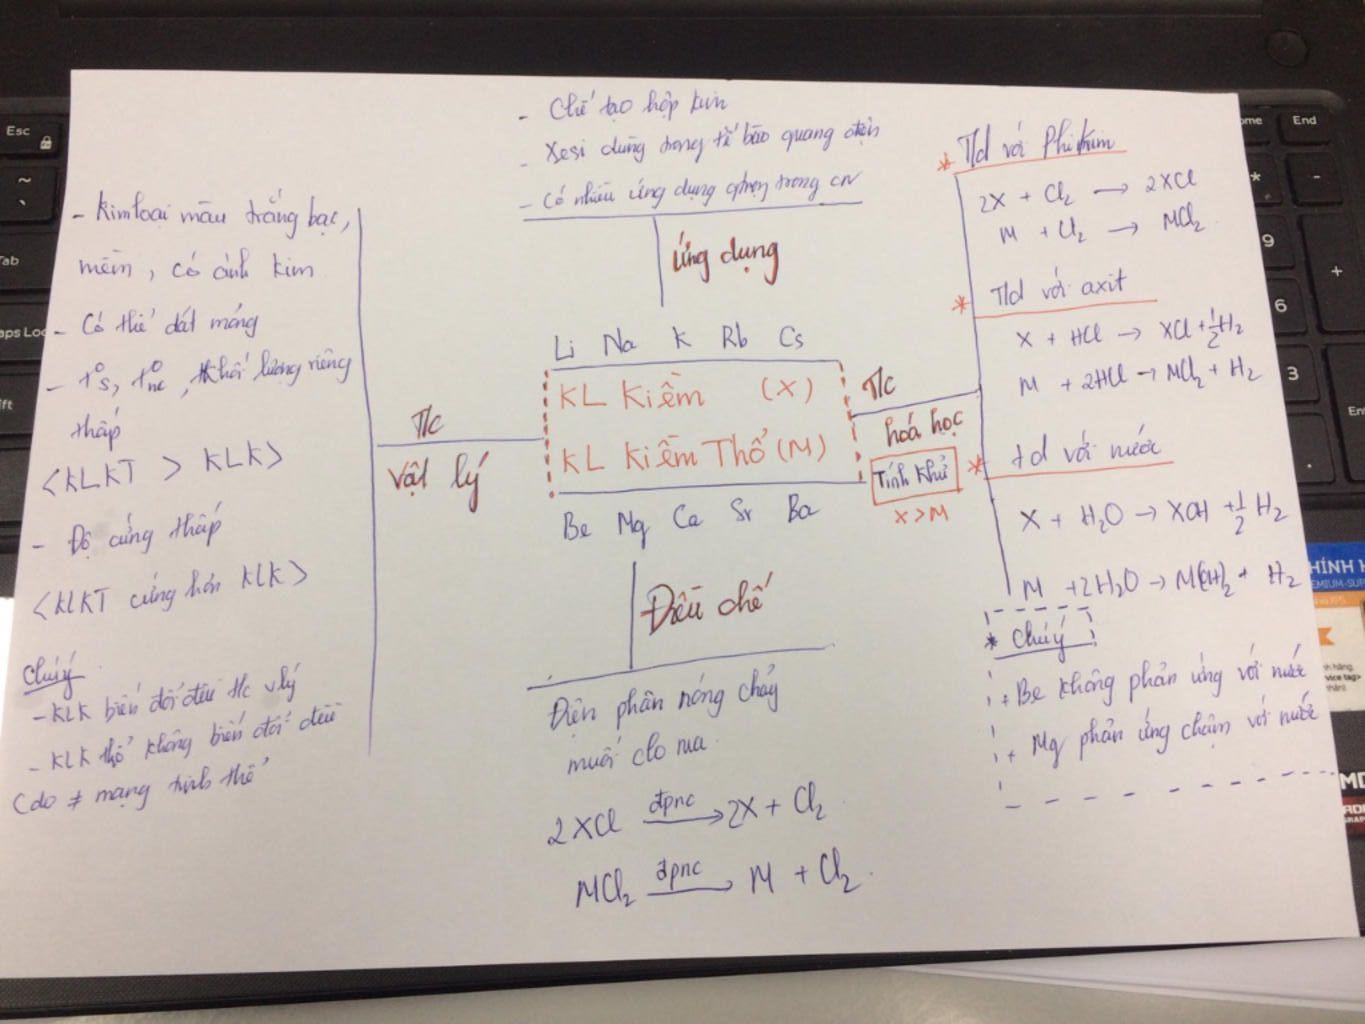 - Chế tạo hợp kim
- Xesi dùng trong tế bào quang điện
- Có nhiều ứng dụng qtrọng trong CN
Ứng dụng
- Kim loại màu trắng bạc,
mềm, có ánh kim
- Có thể dát mỏng
- t°s, t°nc, khối lượng riêng
thấp
<KLKT > KLK>
- Độ cứng thấp
<KLKT cứng hơn KLK>
Chú ý
- KLK biến đổi đều t/c vlý
- KLK thổ không biến đổi đều
(do ≠ mạng tinh thể
T/c
Vật lý
Li Na K Rb Cs
KL Kiềm (X)
KL Kiềm Thổ (M)
Be Mg Ca Sr Ba
T/c
hoá học
Tính khử
X > M
* T/d với Phi kim
2X + Cl₂ → 2XCl
M + Cl₂ → MCl₂
* T/d với axit
X + HCl → XCl + 1/2 H₂
M + 2HCl → MCl₂ + H₂
* t/d với nước
X + H₂O → XOH + 1/2 H₂
M + 2H₂O → M(OH)₂ + H₂
* Chú ý
+ Be không phản ứng với nước
+ Mg phản ứng chậm với nước
Điều chế
Điện phân nóng chảy
muối clo rua
2XCl đpnc → 2X + Cl₂
MCl₂ đpnc → M + Cl₂.
Esc
~
`
Tab
Caps Loc
ift
ome
End
*
-
9
+
6
3
Ent
HÍNH H
EMIUM-SUP
h hàng.
rvice tag>
nhân)
MD